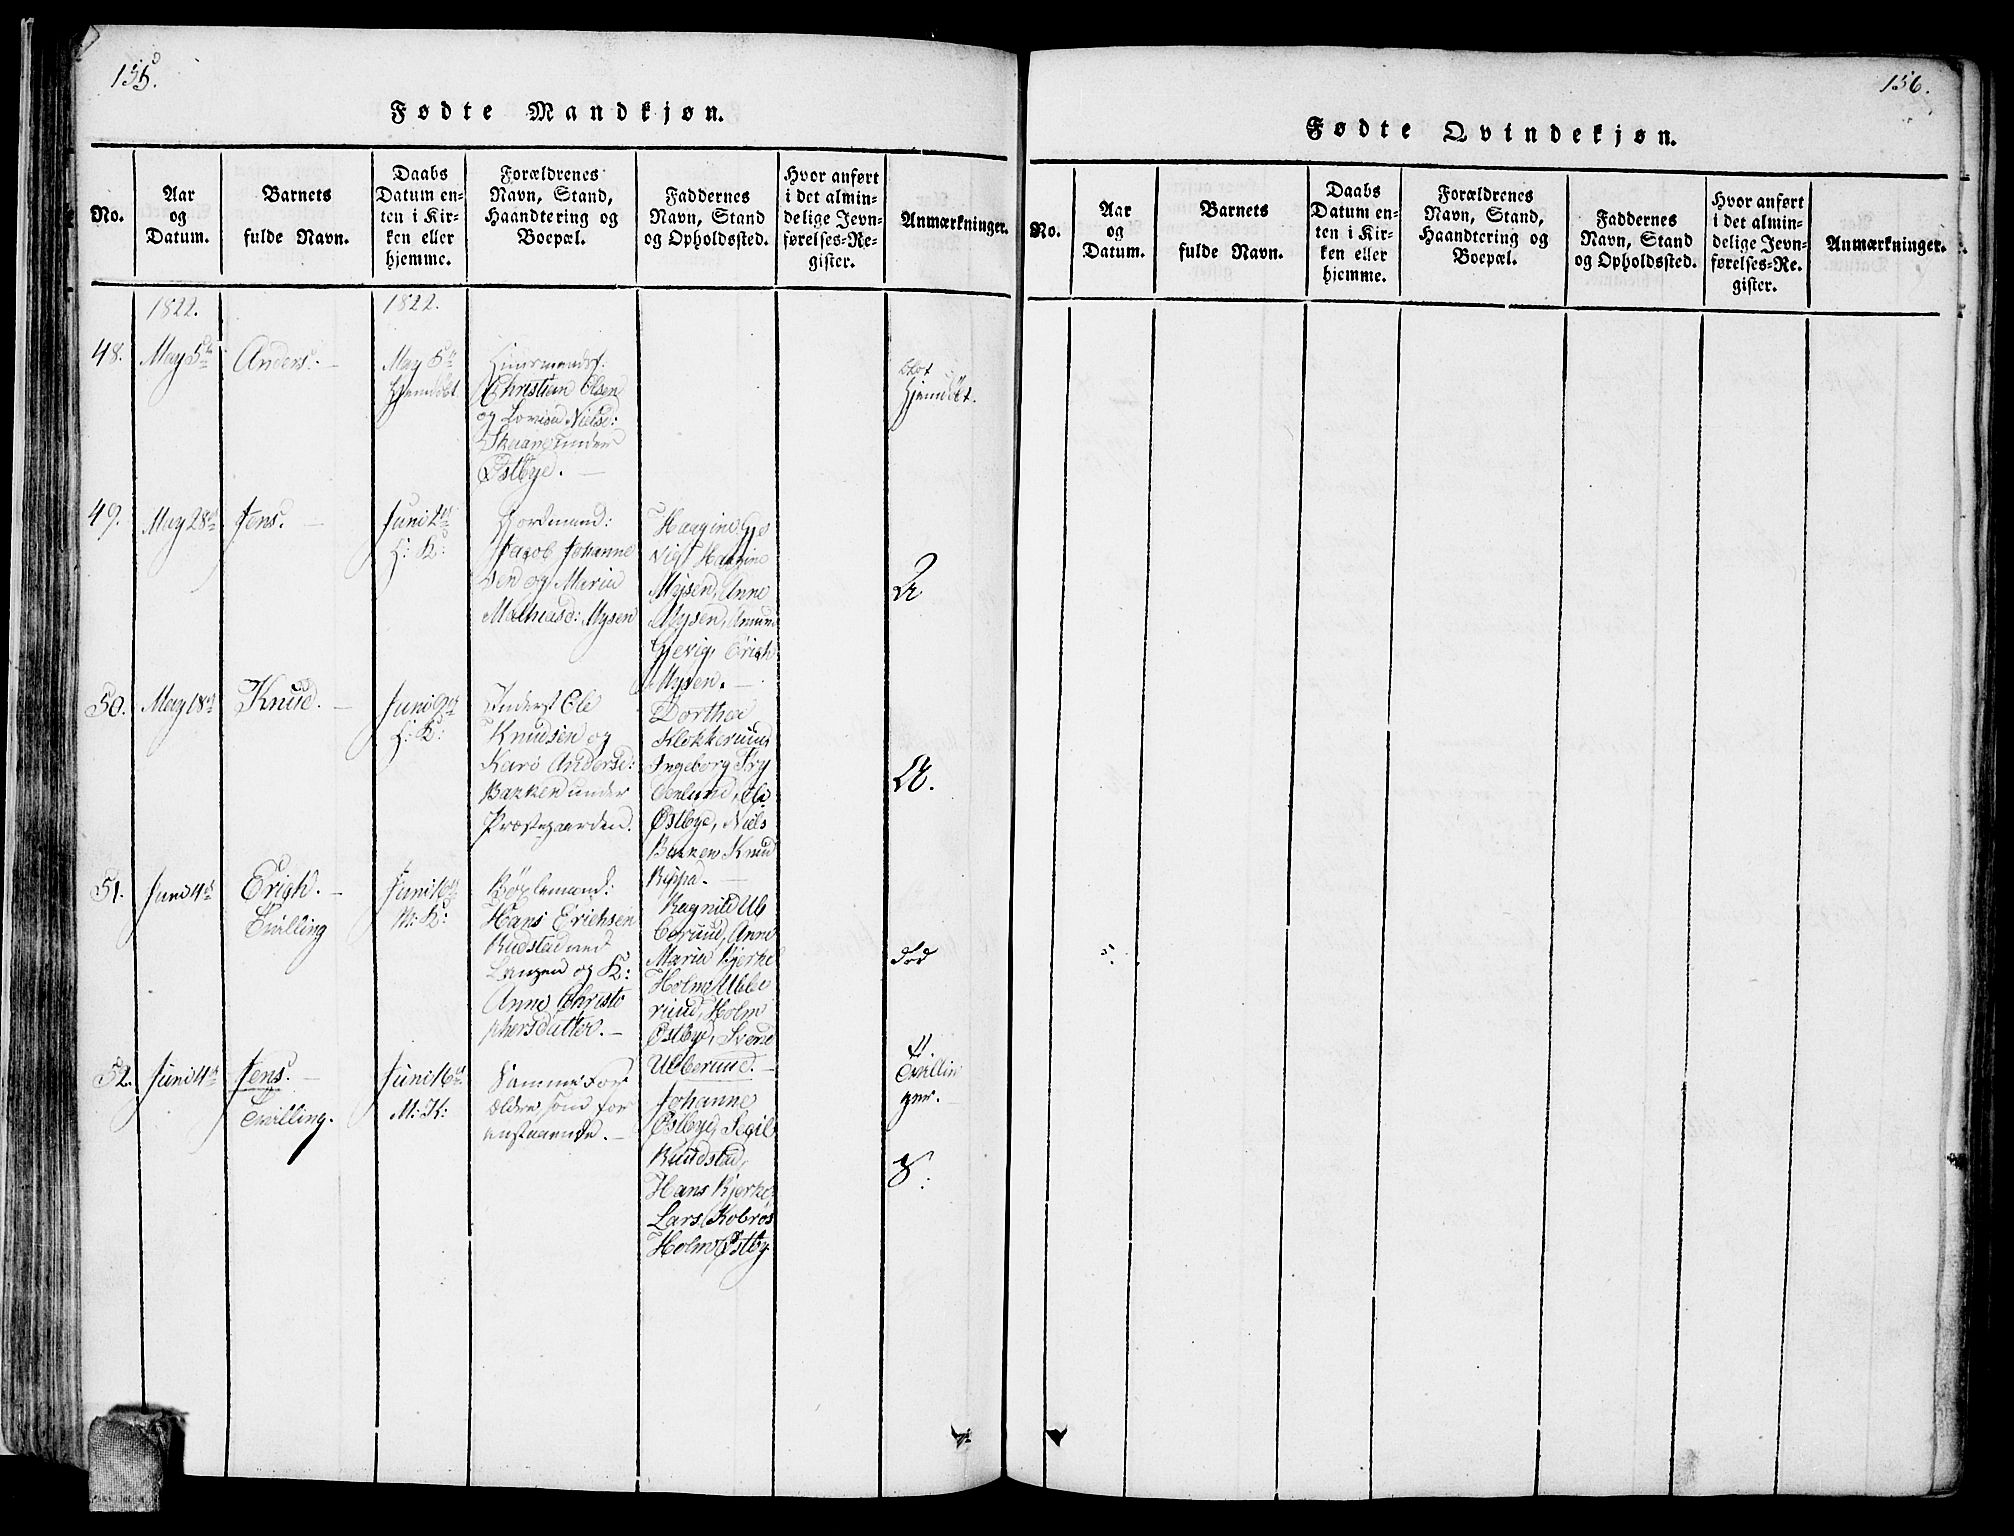 155.
Fødte Mandkjøn.
No.
Aar
og
Datum.
Barnets
fulde Navn.
Daabs
Datum en-
ten i Kir-
ken eller
hjemme.
Forældrenes
Navn, Stand,
Haandtering og
Boepæl.
Faddernes
Navn, Stand
og Opholdssted.
Hvor anført
i det almin-
delige Jevn-
førelses-Re-
gister.
Anmærkninger.
1822.
1822.
48.
May 5te
Anders. -
May 5te
Hjemdøbt.
Huusmandsf.
Christian Olsen
og Lovise Nielsd:
Skaaret under
Østbye. -
Hjemdøbt.
49.
May 28de
Jens. -
Juni 2den
H: K:
Gordmand:
Jacob Johanne
sen og Maria
Mathiasd: Mysen
Haagine Gje
vig, Haagine
Mysen, Anne
Mysen, Amund
Gjevig, Erich
Mysen. -
50.
May 18de
Knud. -
Juni 9de
H: K:
Inderst Ole
Knudsen og
Kari Andersd:
Bakken under
Præstegaarden.
Dorthea
Klokkeruud,
Ingeborg Fry
denlund, Ole
Østbye, Niels
Bakken, Knud
Rippa. -
51.
Juni 4de
Erich. -
Tvilling
Juni 16de
M: K:
Bøxlemand:
Hans Erichsen
Rudstad ved
Langen og K:
Anne Christo
phersdatter. -
Ragnild Ub
berud, Anne
Maria Bjerke
Holm Ubbe
rud, Holm
Østbye, Svend
Ubberud. -
død
52.
Juni 4de
Jens. -
Tvilling.
Juni 16de
M: K:
Samme For
ældre, som for
anstaaende. -
Johanne
Østbye, Segil
Ruudstad,
Hans Bjerke,
Lars Kobrøs
Holm Østby
Tvillin
ger.
156.
Fødte Qvindekjøn.
No.
Aar
og
Datum.
Barnets
fulde Navn.
Daabs
Datum en-
ten i Kir-
ken eller
hjemme.
Forældrenes
Navn, Stand,
Haandtering og
Boepæl.
Faddernes
Navn, Stand
og Opholdssted.
Hvor anført
i det almin-
delige Jevn-
førelses-Re-
gister.
Anmærkninger.